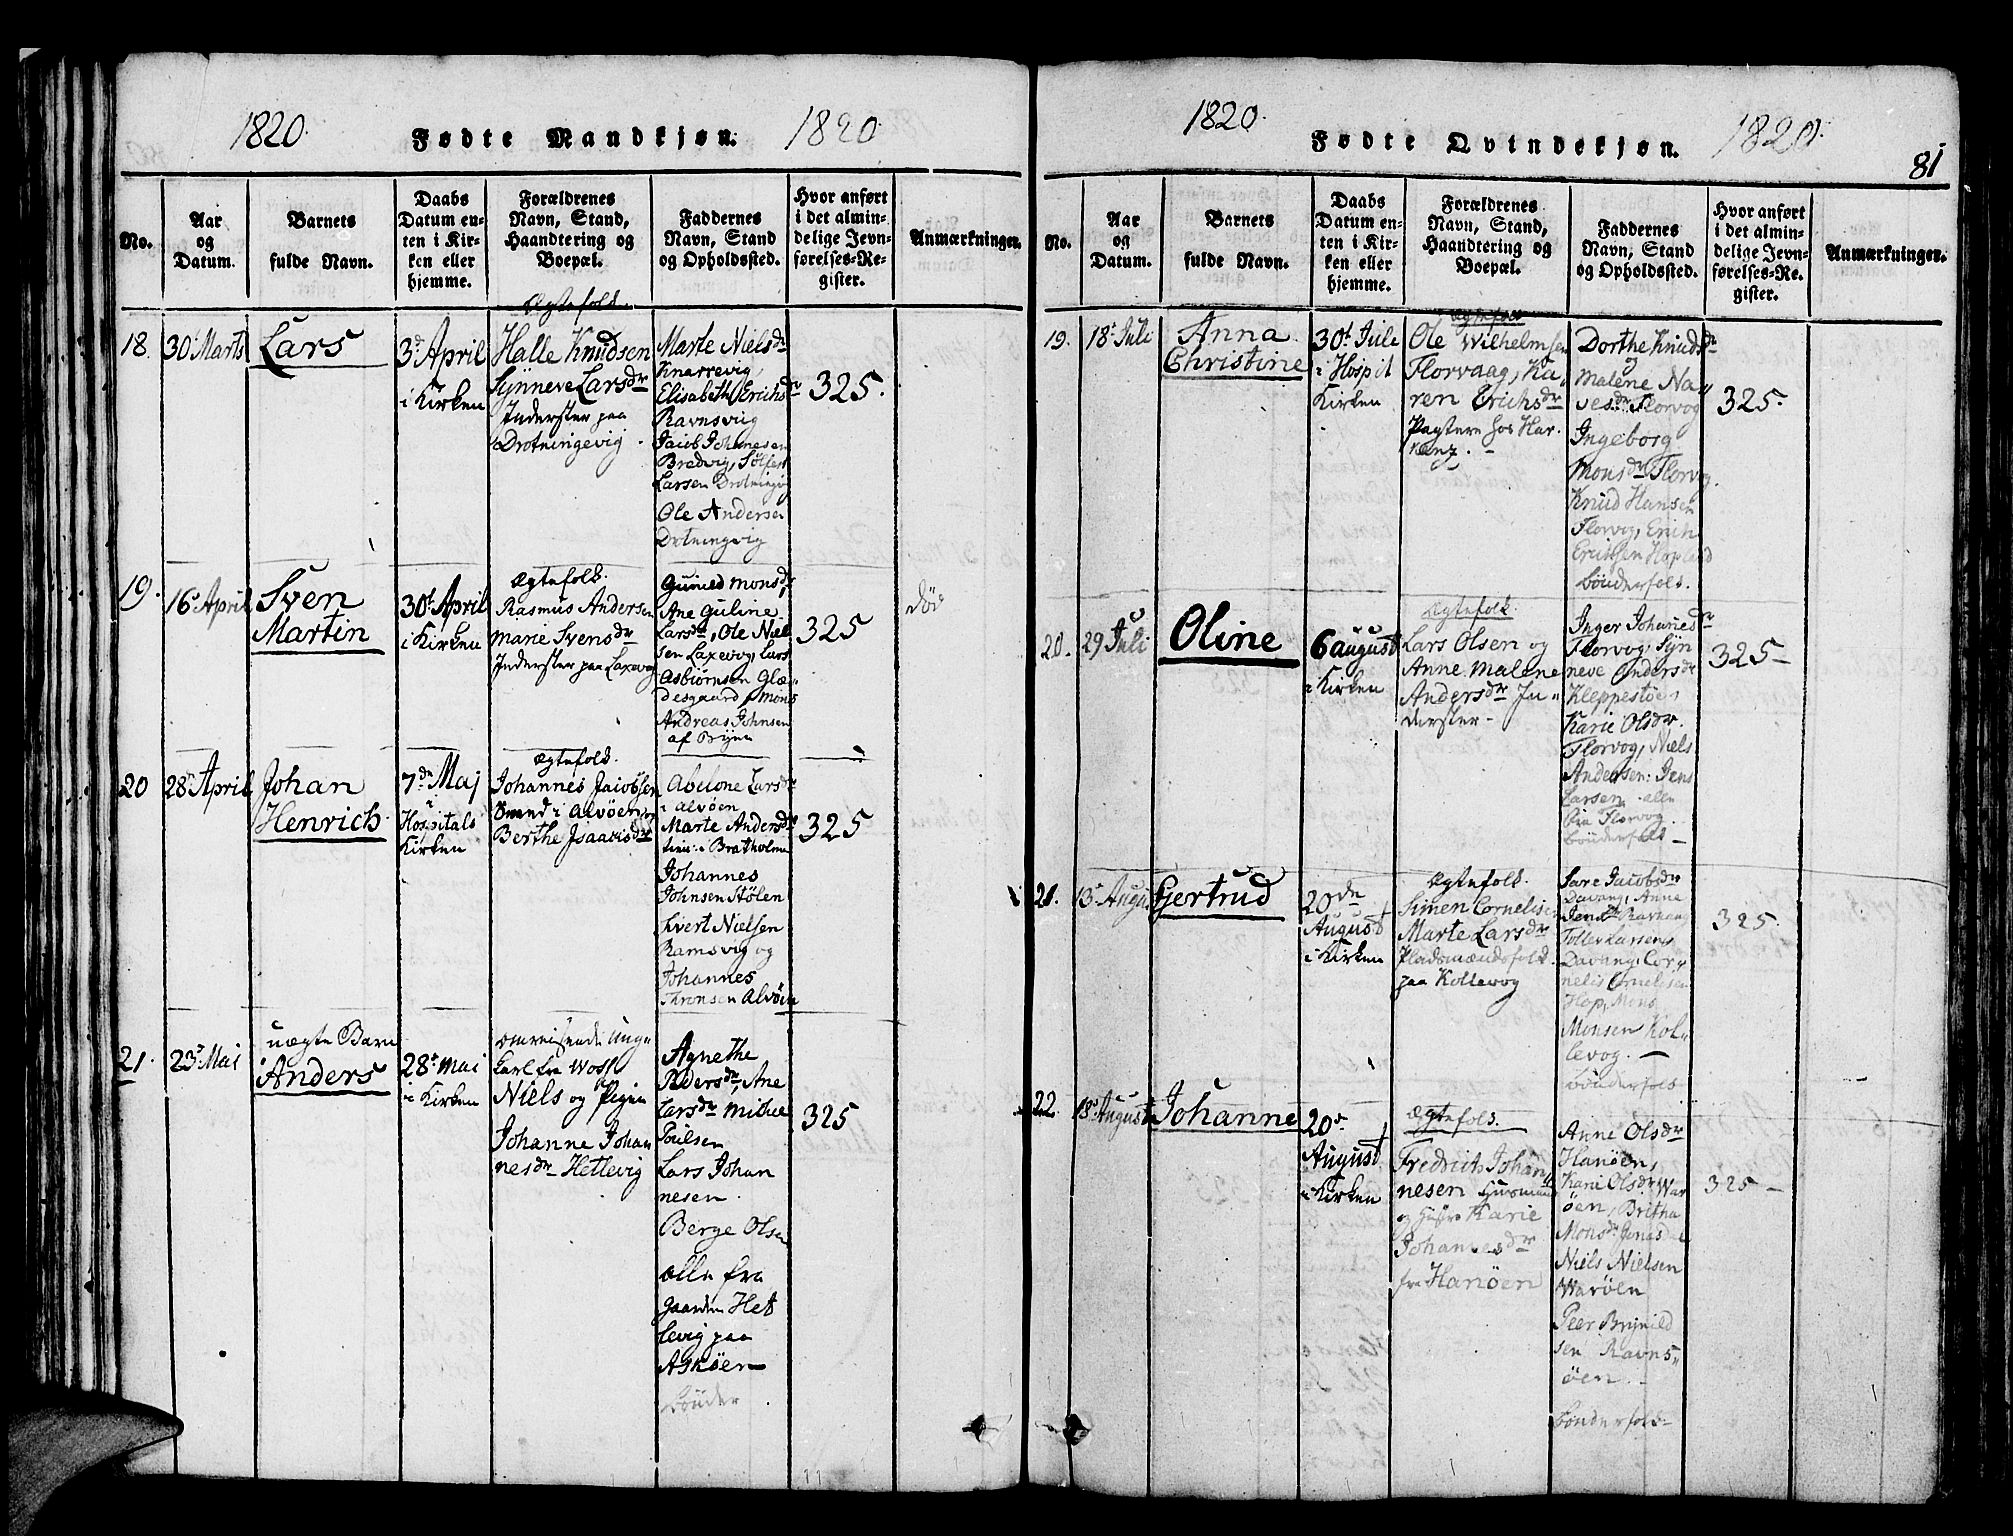 1820.
Fødte Mandkjøn.
1820
No.
Aar
og
Datum.
Barnets
fulde Navn.
Daabs
Datum en-
ten i Kir-
ken eller
hjemme.
Forældrenes
Navn, Stand,
Haandtering og
Boepæl.
Faddernes
Navn, Stand
og Opholdssted.
Hvor anført
i det almin-
delige Jevn-
førelses-Re-
gister.
Anmærkninger.
18.
30t Marts
Lars
3d April
i Kirken
Ægtefolk.
Halle Knudsen
Synneve Larsdr
Inderster paa
Drotningevig.
Marte Nielsdr
Knarrevig,
Elisabeth Erichsdr
Ravnsvig
Jacob Johnnesen
Bredvig,
Larsen
Ole Andersen
Drtningvig
325.
19.
16. April
Sven
Martin
30t April
i Kirken
Ægtefolk.
Rasmus Andersen
Marie Svensdr
Inderster paa Laxevog
Gunild Monsdr,
Ane Guline
Larsdr, Ole Niel
sen Laxevog, Lars
Asbiørnsen Glæ
desgaard, Mons
Andreas Johnsen
af Byen
325
død
20
28. April
Johan
Henrich.
7de Maj
i
Hospitals
Kirken
Ægtefolk.
Johannes Jacobsen
Smed i Alvøen og
Berthe Isaacsdr
Abelone Larsdr
i Alvøen
Marte Andersdr
Bratholmen
Johannes
Johnsen Stølen
Lvert Nielsen
Ramsvig og
Johannes
Thronsen Alvøen
325
21.
23. Mai
uægte Barn
Anders
28. Mai
i Kirken
omreisende Ung-
karl fra Woss
Niels og Pigen
Johanne Johan
nesdr Hetlevig
Agnethe
Pedersdr, Ane
Larsdr Mickel
Poulsen
Lars Johan
nesen
Berge Olsen
alle fra
gaarden Het
levig paa
Askøen
Bønder
325
1820.
Fødte Qvindekjøn.
1820.
81
No.
Aar
og
Datum.
Barnets
fulde Navn.
Daabs
Datum en-
ten i Kir-
ken eller
hjemme.
Forældrenes
Navn, Stand,
Haandtering og
Boepæl.
Faddernes
Navn, Stand
og Opholdssted.
Hvor anført
i det almin-
delige Jevn-
førelses-Re-
gister.
Anmærkninger.
19.
18. Juli
Anna
Christine
30t Julie
i Hospit
Kirken
Ægtefolk
Ole Wilhelmsen
Florvaag, Ka
ren Erichsdr
Pagtere hos Har
Dorthe Knudsdr
og
Malene Na
vesdr Florvog
Ingeborg
Monsdr Florvog.
Knud Hansen
Florvog, Erich
Erichsen Hopland
bønderfolk.
325.
20.
29 Juli
Oline
6 august
i Kirken
Ægtefolk.
Lars Olsen og
Anne Malene
Andersdr In-
derster-
Inger Johannesdr
Florvog, Syn
neve Andersdr
Kleppestøe,
Karie Olsdr.
Florvog, Niels
Andersen: Jens
Larsen alle
fra Florvog.
bønderfolk
325-
21.
13. Augu
Gertrud
20de
August
i Kirken
Ægtefolk.
Simen Cornelisen
Marte Larsdr
Pladsmændsfolk
paa Kollevog
Sare Jacobsdr
Davang, Anne
Jensdr
Toller Larsen
Davang, Cor
nelis Cornelisen
Hop, Mons
Monsen Kol
levog.
bønderfolk
325.
22
18. August
Johanne
20.
August
i Kirken
Ægtefolk.
Fredrik Johan
nesen Husmand
og Hustr Karie
Johannesdr
fra Hanøen
Anne Olsdr
Hanøen,
Karie Olsdr War
øen, Britha
Monsdr
Niels Nielsen
Warøen
Peer Brynild
sen Ravns
øen.
bønderfolk
325-